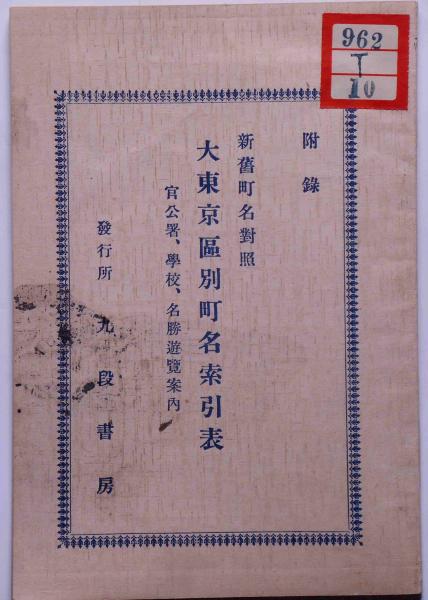 附錄
新舊町名對照
大東京區別町名索引表
官公署、學校、名勝遊覽案內
發行所 九段書房
962
T
10